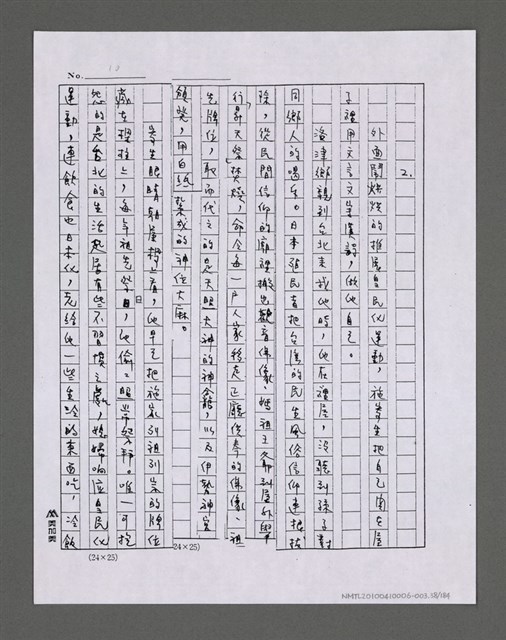 No. 10
2.
外面鬧烘烘的推展皇民化運動，施寄生把自己關在屋
子裡用文言文寫漢詩，做他自己。
洛津鄉親到台北來找他時，他在裡屋，沒聽到孫子對
同鄉人的喝叱。日本殖民者把台灣的民生風俗信仰連根拔
除，從民間信仰的廟裡搬出觀音佛像、媽祖王爺到屋外舉
行昇天祭焚燒，命令每一戶人家移走正廳供奉的佛像、祖
先牌位，取而代之的是天照大神的神龕，以及伊勢神宮
頒發，用白紙紮成的神位大麻。
寄生眼睛朝屋樑上看，他早已把施家列祖列宗的牌位
藏在樑柱上，每年祖先祭日，他偷偷照常祭拜。唯一可抱
怨的是台北的生活起居有些不習慣之處，媳婦响应皇民化
運動，連飲食也日本化，竟給他一些生冷的東西吃，冷飯
(24×25)
24×25)
NMTL20100410006-003.38/184